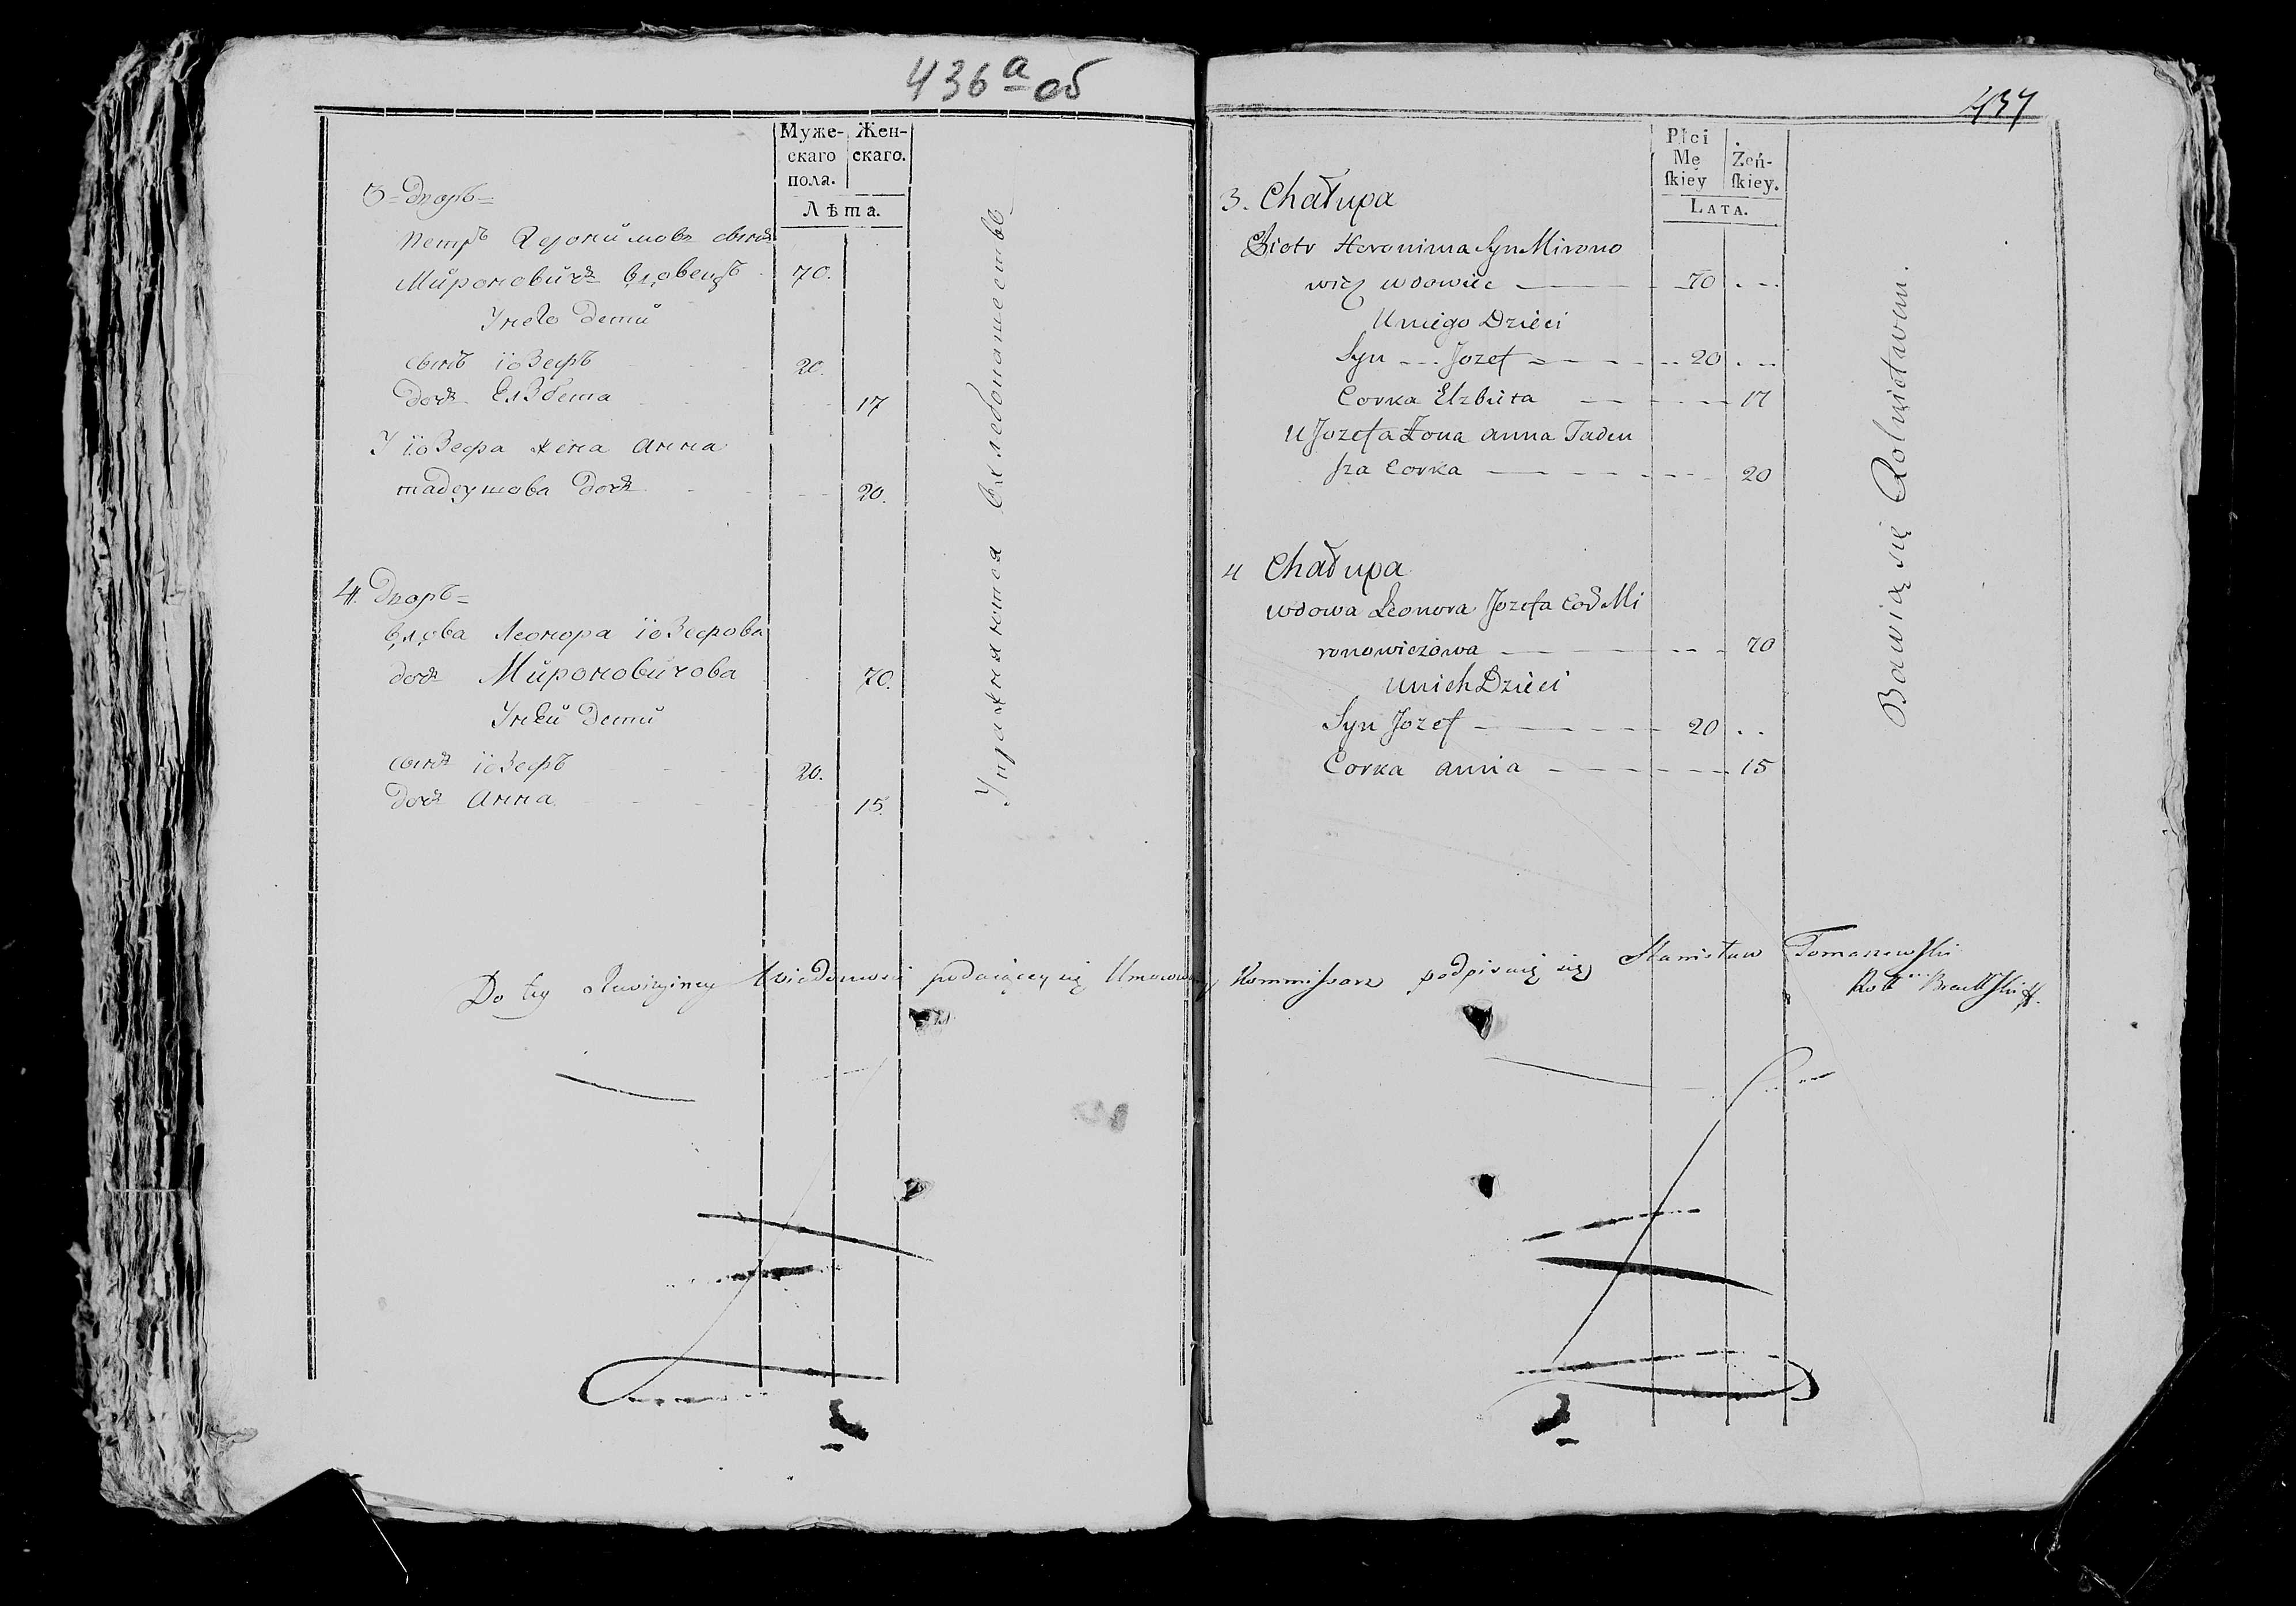 436 а об
Муже-
скаго
пола.
Жен-
скаго.
Лѣта.
3 = Дворъ =
Петръ Героними мовъ сынъ
Мироновичъ вдовецъ 70.
У него дети
сынъ іозефъ 20.
дочь Елзбета 17
У іозефа жена Анна
тадеушова дочь 20.
4. Дворъ =
вдова Леонора іозефова
дочь Мироновичова 70.
У ней дети
сынъ іозефъ 20.
дочь Анна 15.
Упражняются в хлебопашестве
437
Płci
Mę
ſkiey
Żeń-
ſkiey.
LATA.
3. Chałupa
Piotr Heronima Syn Mirono
wicz wdowiec 70
U niego Dzieci
Syn Jozef 20
Corka Elzbieta 17
U Jozefa Żona anna Tadeu
sza Corka 20
4 Chałupa
wdowa Leonora Jozefa Cor Mi
ronowiczowa 70
U nich Dzieci
Syn Jozef 20
Corka anna 15
Bawią się Rolnictwem.
Do tey Rewizyiney Wiadomosci podaiącey się Umocowany Kommissarz podpisuię się Stanisław Tomaszewski